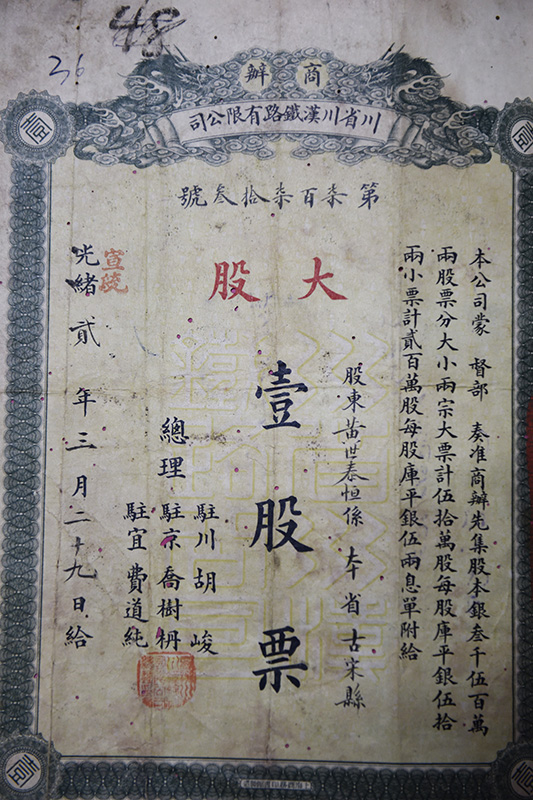 48
36
商辦
川省川漢鐵路有限公司
第柒百柒拾叁號
本公司蒙 督部 奏准商辦先集股本銀叁千伍百萬
兩股票分大小兩宗大票計伍拾萬股每股庫平銀伍拾
兩小票計貳百萬股每股庫平銀伍兩息單附給
大股
股東黃世泰恒係本省古宋縣
壹股票
駐川胡峻
總理 駐京喬樹枬
駐宜費道純
宣統
光緒貳年三月二十九日給